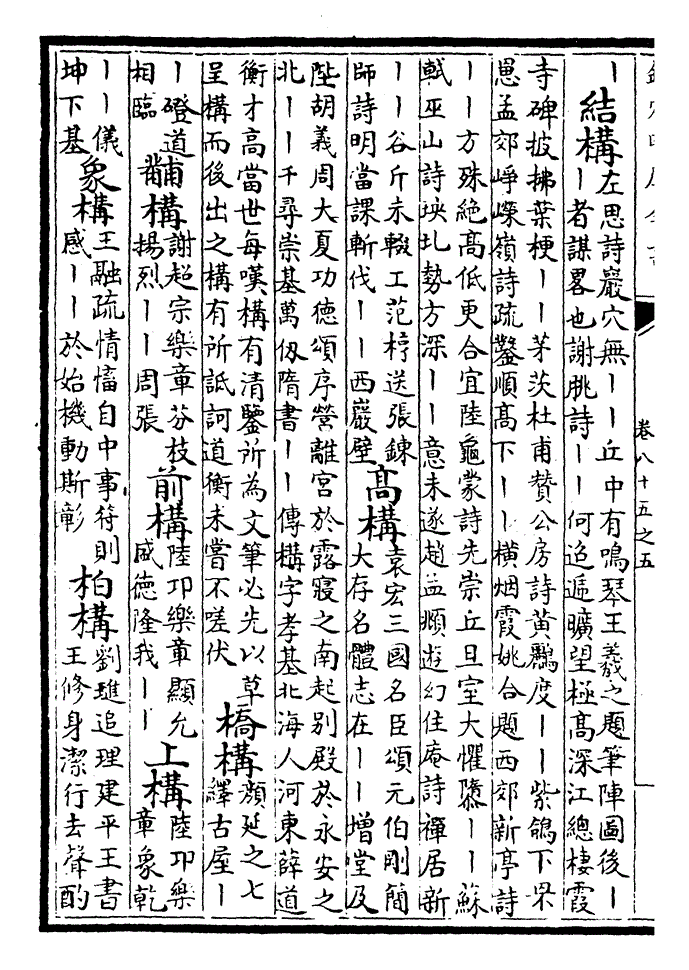 卷八十五之五
丨 結構 左思詩巖穴無丨丨丘中有鳴琴王羲之題筆陣圖後丨
丨者謀畧也謝朓詩丨丨何迢遞曠望極高深江總棲霞
寺碑披拂葉梗丨丨茅茨杜甫贊公房詩黃鸝度丨丨紫鴿下罘
罳孟郊崢嶸嶺詩疏鑿順高下丨丨橫烟霞姚合題西郊新亭詩
丨丨方殊絕高低更合宜陸龜蒙詩先崇丘旦室大懼隳丨丨蘇
軾巫山詩坱圠勢方深丨丨意未遂趙孟頫遊幻住庵詩禪居新
丨丨谷斤未輟工范梈送張鍊
師詩明當課斬伐丨丨西巖壁
高構 袁宏三國名臣頌元伯剛簡
大存名體志在丨丨增堂及
陛胡義周大夏功德頌序營離宮於露寢之南起别殿於永安之
北丨丨千尋崇基萬仭隋書丨丨傳構字孝基北海人河東薛道
衡才高當世每嘆構有清鑒所為文筆必先以草
呈構而後出之構有所詆訶道衡未嘗不嗟伏
橋構 顔延之七
繹古屋丨
丨磴道
相臨
黼構 謝超宗樂章芬枝
揚烈丨丨周張
前構 陸卭樂章顯允
盛德隆我丨丨
上構 陸卭樂
章象乾
丨丨儀
坤下基
象構 王融疏情愊自中事符則
感丨丨於始機動斯彰
柏構 劉璡追理建平王書
王修身潔行去聲酌